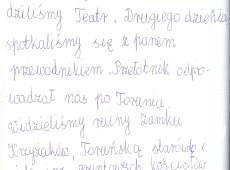 dziliśmy Teatr. Drugiego dzieńa
spotkaliśmy się z panem
przewodnikiem. Przełotnik odpo-
wadzał nas po Toruniu.
Widzieliśmy ruiny zamku
Krzyżaków, Toruńską starówkę i
gruntowych kościołów